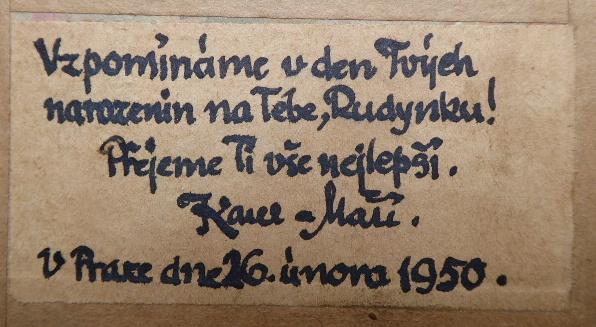 Vzpomínáme v den Tvých
narozenin na Tebe, Rudynku!
Přejeme Ti vše nejlepší.
V Praze dne 26. února 1950.